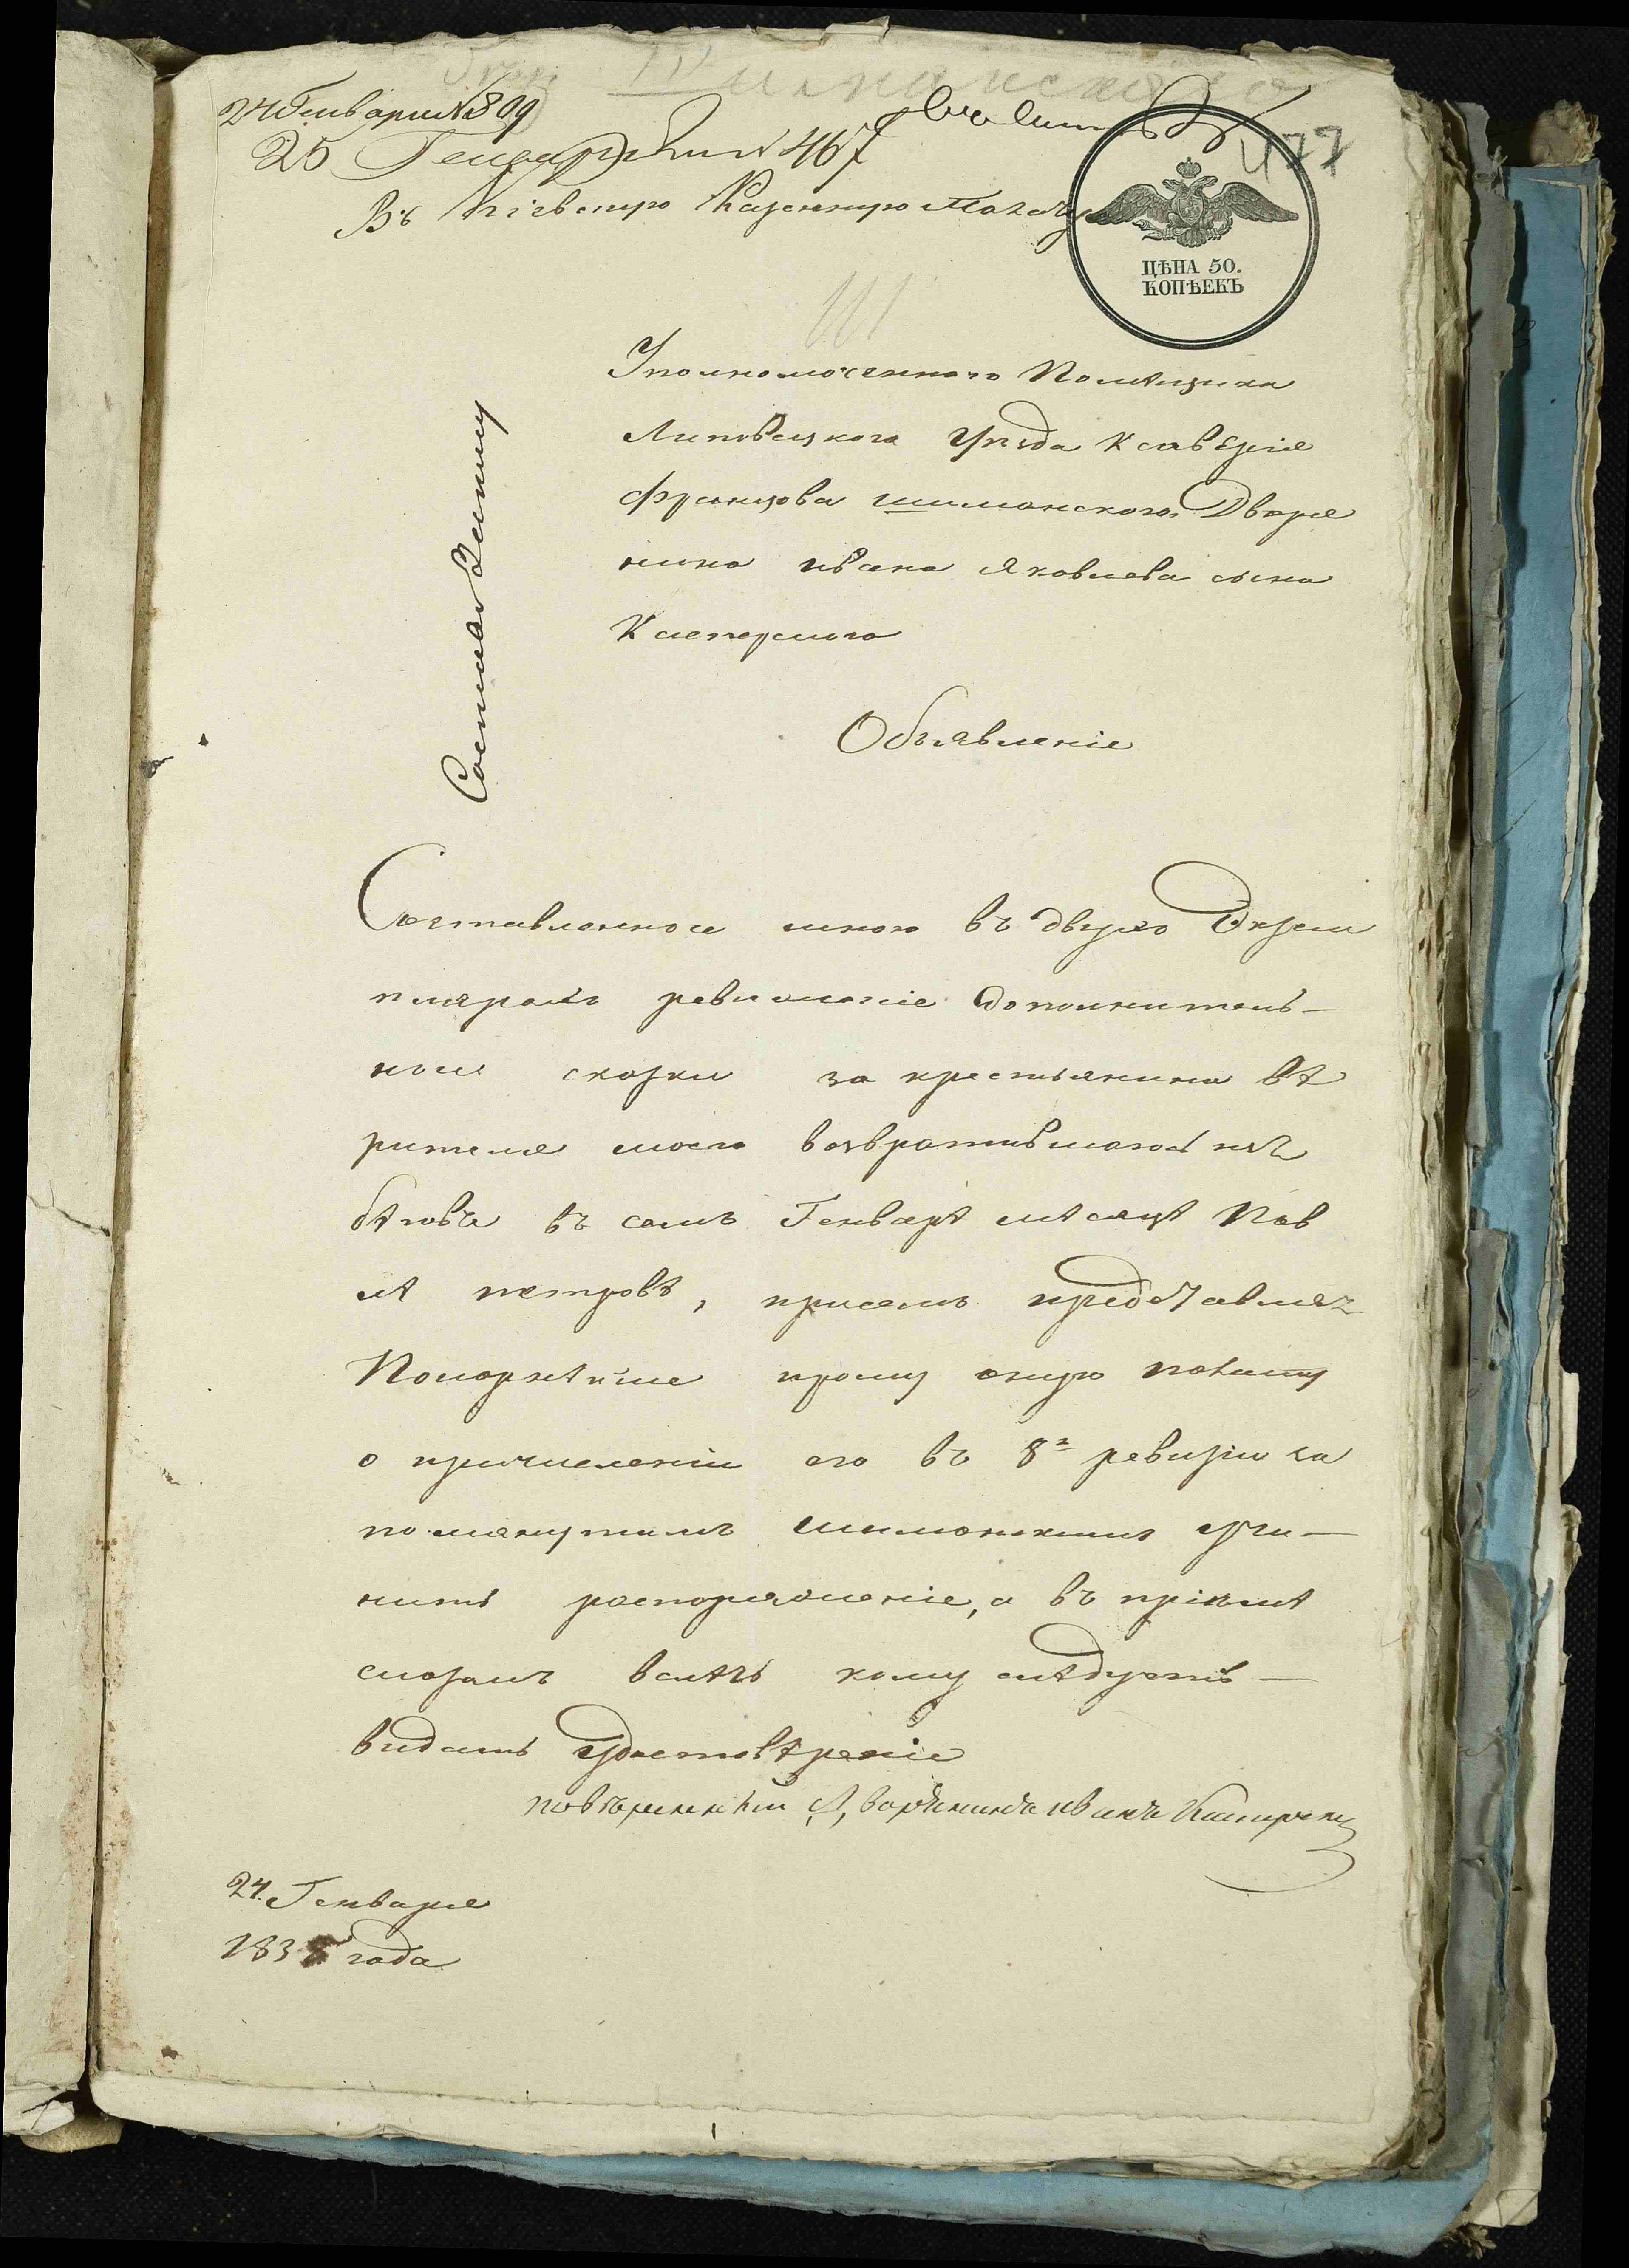 Шиманскаго
24 Генваря № 809
25 Генваря № 467
477
Въ Кіевскую Казенную Палату
ЦѢНА 50.
КОПѢЕКЪ
Уполномоченного Помѣщика
Липовецкого уѣзда Ксаверія
Францова Шиманского Дворя
нина ивана Яковлева сына
Касперского
Объявленіе
Составленное мною въ двухъ Экзем
плярахъ ревизские дополнитель-
ные сказки за крестьянина вѣ
рителя моего возвратившагось изъ
бѣговъ въ семъ Генварѣ мѣсяцѣ Пав
лѣ петровѣ, присемъ представляя
Покорнѣйше прошу оную палату
о причисленіи его въ 8й ревизіи за
помянутымъ Шиманскимъ учи-
нить распоряженіе, а въ пріемѣ
сказокъ велѣть кому слѣдуетъ-
видать удостовѣреніе
повѣренный Дворянинъ иванъ Касперский
24 Генваря
1838 года